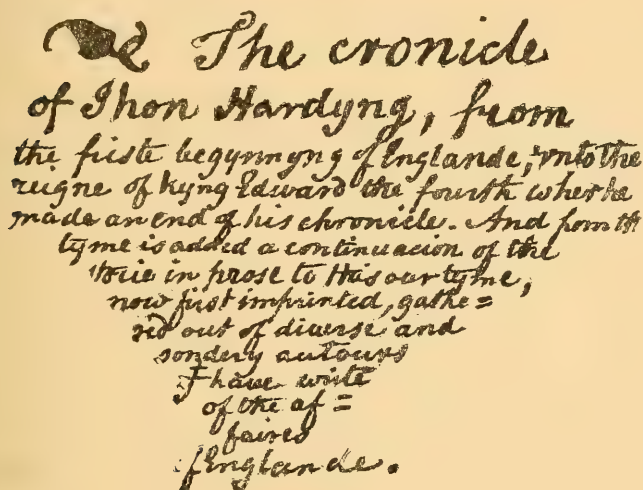 The cronicle
of Jhon Hardyng, from
the firste begynnyng of Englande, vnto the
reigne of kyng Edward the fourth wher he
made an end of his chronicle. And from th
tyme is added a continuacion of the
storie in prose to this our tyme,
now first imprinted, gathe=
red out of diuerse and
sondery autours
I have write
of the af=
faires
of Englande.